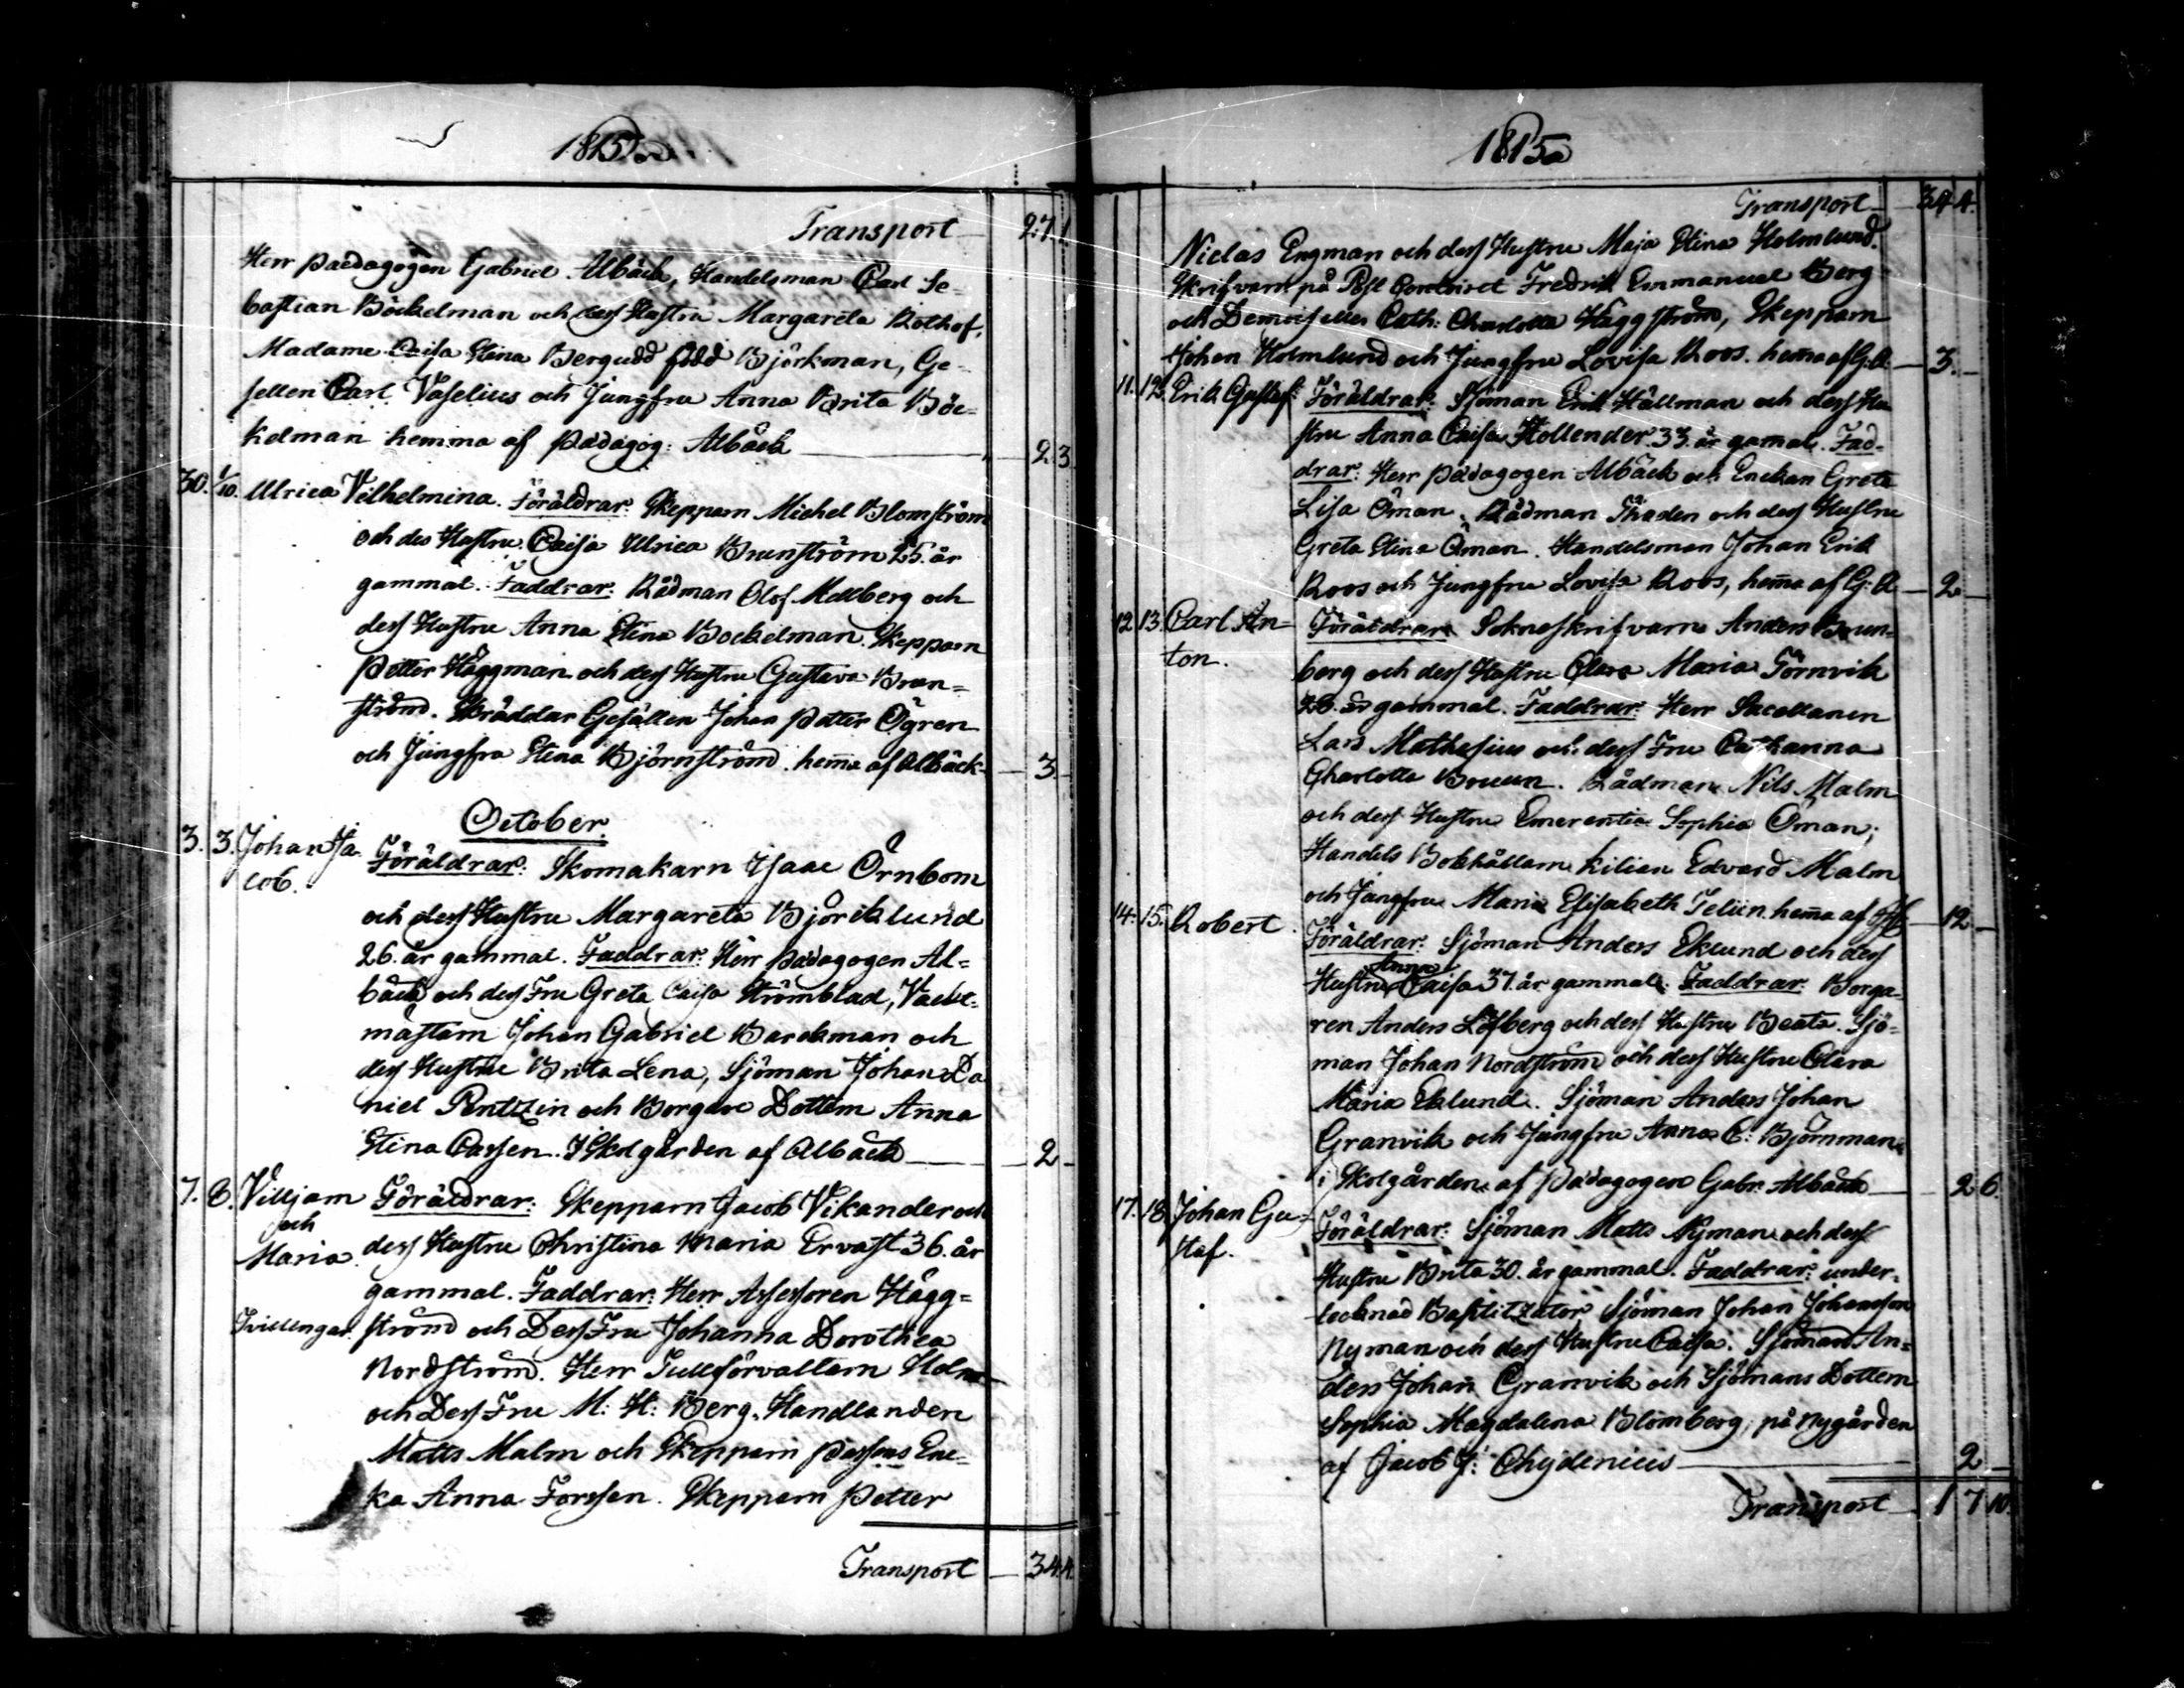 1815
Transport — 2.7.1
Herr Paedagogen Gabriel Albäck, Handelsman Carl Se-
bastian Böckelman och dess Hustru Margareta Rothof,
Madame Caisa Stina Bergudd född Björkman, Ge-
sellen Carl Vaselius och Jungfru Anna Brita Böc-
kelman hemma af Pädagog: Albäck — 2 3
30. 1/10. Ulrica Vilhelmina. Föräldrar: Skepparn Michel Blomström
och des Hustru Caisa Ulrica Brunström 25. år
gammal. Faddrar: Rådman Olof Mellberg och
dess Hustru Anna Stina Bockelman. Skepparn
Petter Häggman och dess Hustru Gustava Brun=
ström. Skräddar Gesällen Johan Petter Ögren
och Jungfru Stina Björnström. hema af Albäck — 3 —
October.
3. 3. Johan Ja- Föräldrar: Skomakarn Isaac Örnbom
cob.
och dess Hustru Margareta Björklund
26. år gammal. Faddrar: Herr Pädagogen Al=
bäck och dess Fru Greta Caisa Strömblad, Vackt-
mästarn Johan Gabriel Barckman och
dess Hustru Brita Lena, Sjöman Johan Da
niel Pentzin och Borgare Dottern Anna
Stina Cassen. I Skolgården af Albäck — 2 —
7. 8. Villjam Föräldrar: Skepparn Jacob Vikander och
och
Maria. dess Hustru Christina Maria Ervast 36. år
gammal. Faddrar: Herr Assessoren Hägg=
Tvillingar. ström och Dess Fru Johanna Dorothea
Nordström. Herr Tullförvaltarn Holm
och Dess Fru M: H: Berg. Handlanden
Matts Malm och Skepparn Passens Enc-
ka Anna Forssen. Skepparn Petter
Transport — 3.4.4.
1815
Transport — 3.4 4.
Niclas Engman och dess Hustru Maja Stina Holmlund.
Skrifvarn på Post Contoiret Fredrik Emmanuel Berg
och Demoiselles Cath: Charlotta Häggström, Skepparn
Johan Holmlund och Jungfru Lovisa Roos. hema af G: A. — 3. —
11. 12. Erik Gustaf: Föräldrar: Sjöman Erik Hällman och dess Hu
stru Anna Caisa Hollender 33. år gamal. Fad-
drar: Herr Pädagogen Albäck och Enckan Greta
Lisa Öman. Rådman Thoden och dess Hustru
Greta Stina Öman. Handelsman Johan Erik
Roos och Jungfru Lovisa Roos, hema af G: A — 2 —
12. 13. Carl An- Föräldrar: Sokneskrifvarn Anders Brun-
ton.
berg och dess Hustru Clara Maria Törnvik
28. år gammal. Faddrar: Herr Sacellanen
Lars Mathesius och dess Fru Catharina
Charlotta Bruun. Rådman Nils Malm
och dess Hustru Emerentia Sophia Öman;
Handels Bokhållarn Kilian Edvard Malm
och Jungfru Maria Elisabeth Telin hema af — 12 —
14. 15. Robert. Föräldrar: Sjöman Anders Eklund och dess
Anna
Hustru Caisa 37. år gammal. Faddrar: Borga-
ren Anders Löfberg och dess Hustru Beata. Sjö-
man Johan Nordström och dess Hustru Clara
Maria Eklund. Sjöman Anders Johan
Granvik och Jungfru Anna C: Björnman
i Skolgården af Pädagogen Gabr: Albäck — 2 6.
17. 18. Johan Gu- Föräldrar: Sjöman Matts Nyman och dess
staf.
Hustru Brita 30. år gammal. Faddrar: under-
tecknad Baptitzator, Sjöman Johan Johansson
Nyman och dess Hustru Caisa. Sjöman An=
ders Johan Granvik och Sjömans Dottern
Sophia Magdalena Blomberg, på Nygården
af Jacob J: Chydenius — 2 —
Transport — 1 7 10.